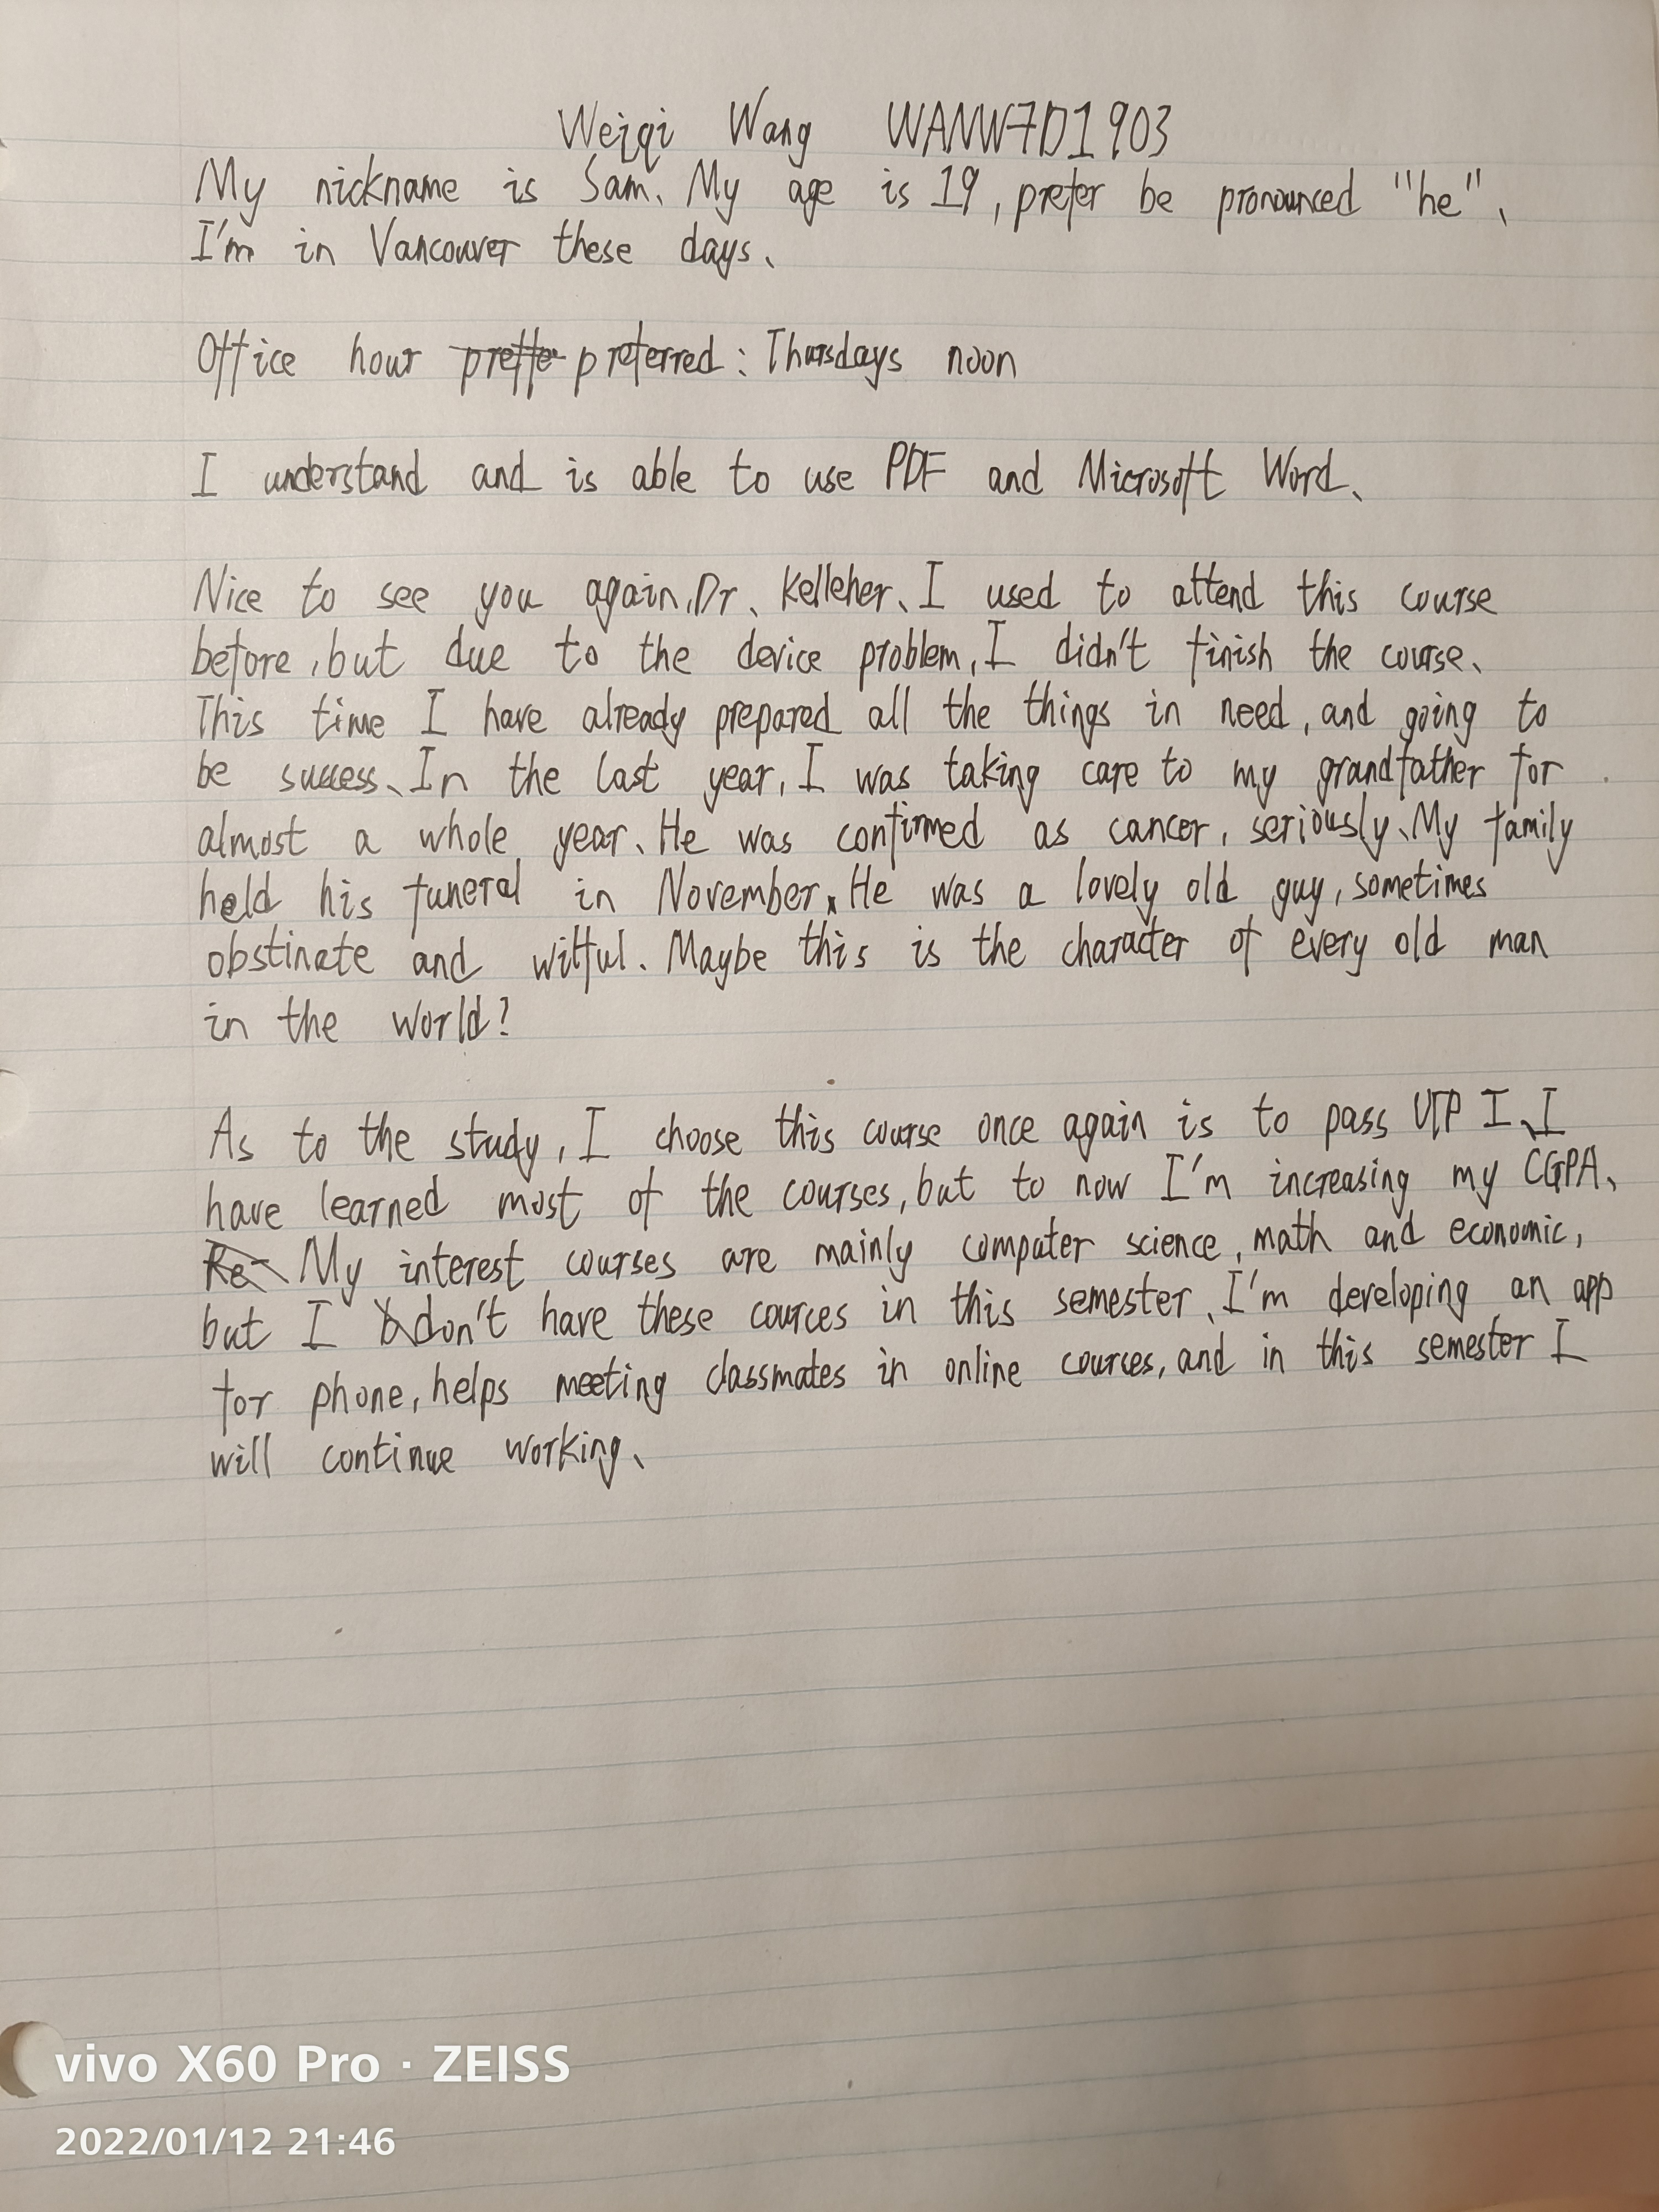 Weiqi Wang WANW7D1903
My nickname is Sam、My age is 19, prefer be pronounced "he"、
I'm in Vancouver these days、
Office hour preffe preferred: Thursdays noon
I understand and is able to use PDF and Microsoft Word、
Nice to see you again, Dr、Kelleher、I used to attend this course
before, but due to the device problem, I didn't finish the course、
This time I have already prepared all the things in need, and going to
be success、In the last year, I was taking care to my grandfather for
almost a whole year、He was confirmed as cancer, seriously、My family
held his funeral in November、He was a lovely old guy, sometimes
obstinate and wilful. Maybe this is the character of every old man
in the world?
As to the study, I choose this course once again is to pass UTP I、I
have learned most of the courses, but to now I'm increasing my CGPA、
Re My interest courses are mainly computer science, math and economic,
but I don't have these cources in this semester、I'm developing an app
for phone, helps meeting classmates in online courses, and in this semester I
will continue working、
vivo X60 Pro · ZEISS
2022/01/12 21:46